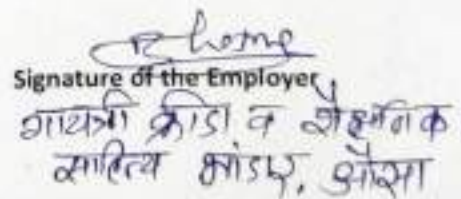 Signature of the Employer
गायत्री क्रीडा व शैक्षणिक
साहित्य भांडार, औसा